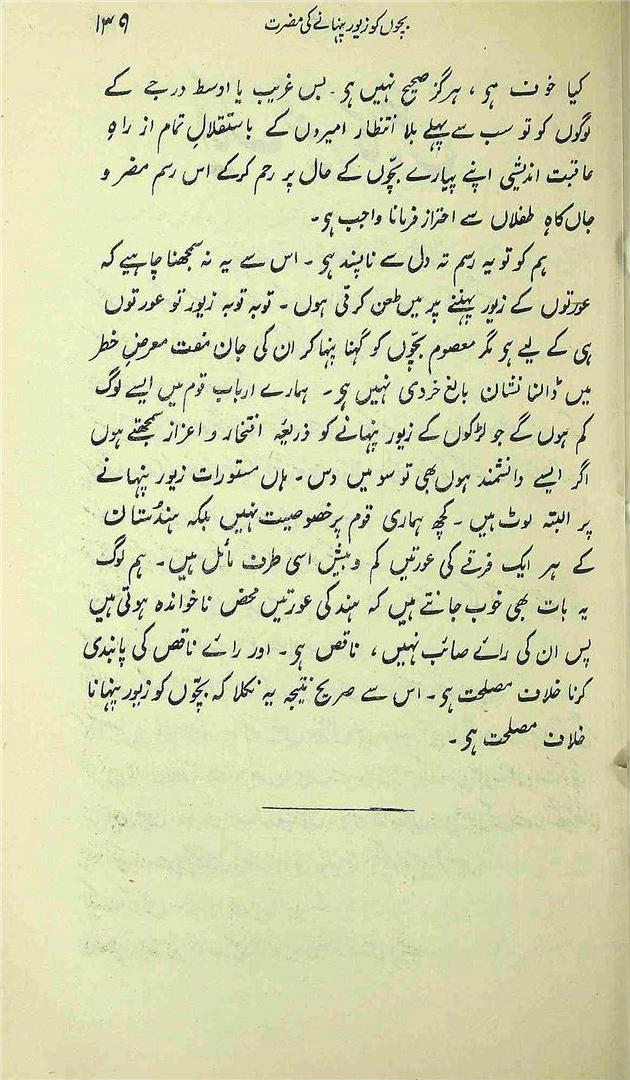 بچوں کو زیور پہنانے کی مضرت ۱۳۹
کیا خوف ہو ، ہرگز صحیح نہیں ہو ۔ بس غریب یا اوسط درجے کے
لوگوں کو تو سب سے پہلے بلا انتظار امیروں کے باستقلالِ تمام از راہِ
عاقبت اندیشی اپنے پیارے بچّوں کے حال پر رحم کرکے اس رسم مضر و
جاں کاہِ طفلاں سے احتراز فرمانا واجب ہو۔
ہم کو تو یہ رسم تہ دل سے ناپسند ہو ۔ اس سے یہ نہ سمجھنا چاہیے کہ
عورتوں کے زیور پہننے پر میں طعن کرتی ہوں ۔ توبہ توبہ زیور تو عورتوں
ہی کے لیے ہو مگر معصوم بچّوں کو گہنا پنہا کر ان کی جان مفت معرضِ خطر
میں ڈالنا نشان بالغ خردی نہیں ہو ۔ ہمارے اربابِ قوم میں ایسے لوگ
کم ہوں گے جو لڑکوں کے زیور پنہانے کو ذریعۂ افتخار و اعزاز سمجھتے ہوں
اگر ایسے دانشمند ہوں بھی تو سو میں دس ۔ ہاں مستورات زیور پنہانے
پر البتہ لوٹ ہیں ۔ کچھ ہماری قوم پر خصوصیت نہیں بلکہ ہندُستان
کے ہر ایک فرقے کی عورتیں کم و بیش اسی طرف مائل ہیں ۔ ہم لوگ
یہ بات بھی خوب جانتے ہیں کہ ہند کی عورتیں محض ناخواندہ ہوتی ہیں
پس ان کی رائے صائب نہیں ، ناقص ہو ۔ اور رائے ناقص کی پابندی
کرنا خلاف مصلحت ہو ۔ اس سے صریح نتیجہ یہ نکلا کہ بچّوں کو زیور پنہانا
خلاف مصلحت ہو ۔